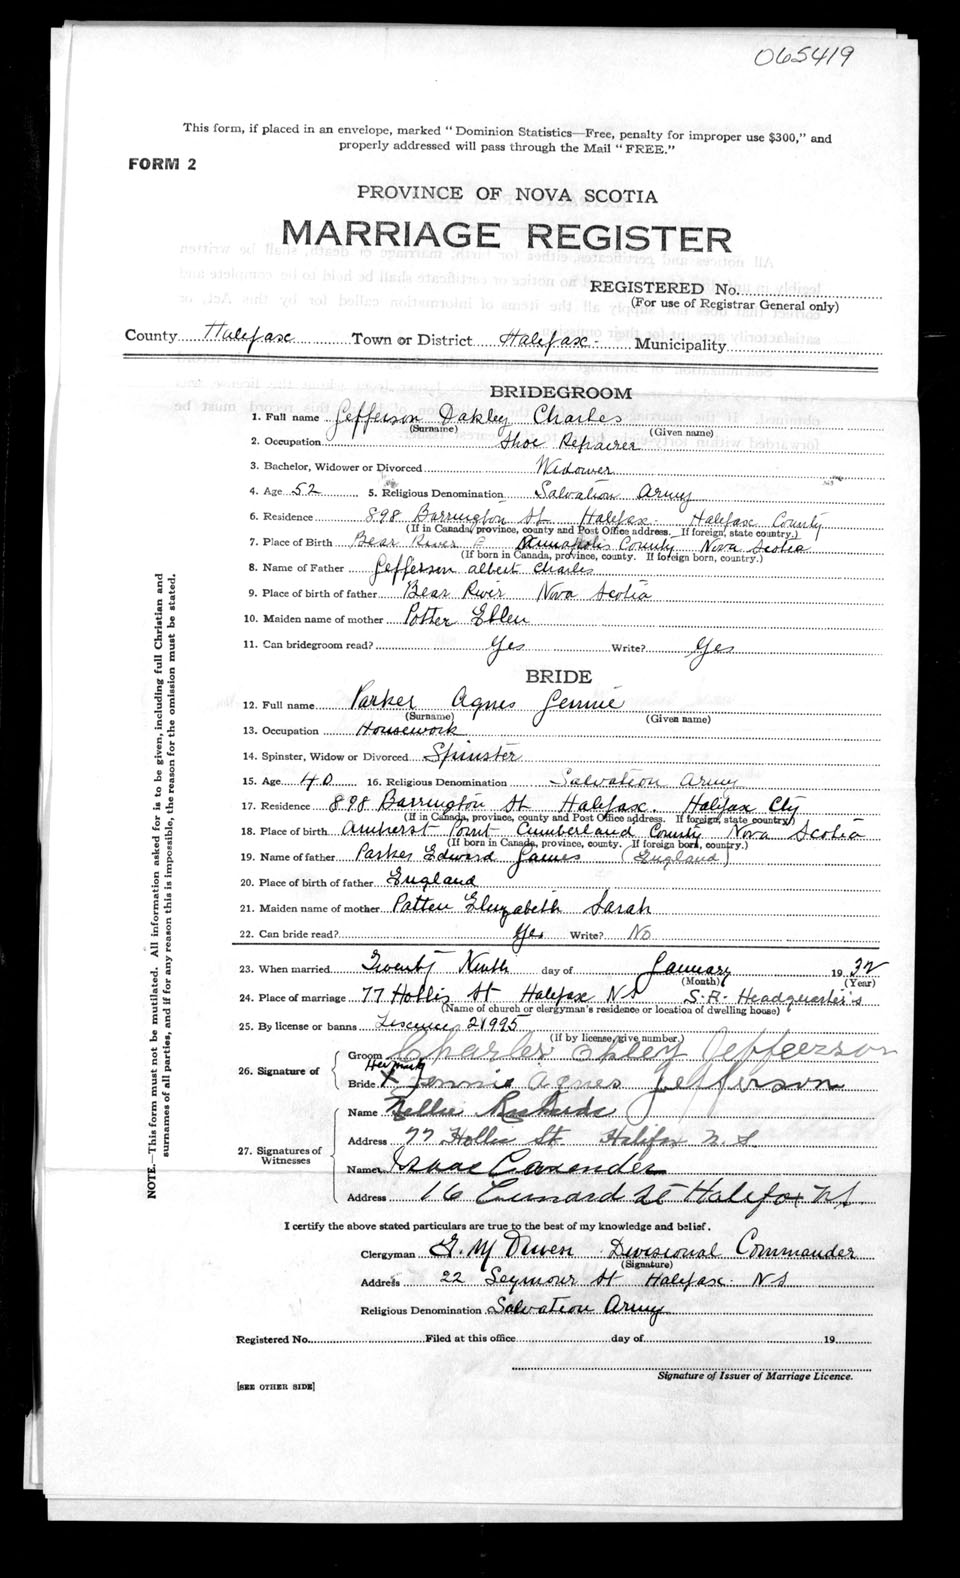 065419
This form, if placed in an envelope, marked "Dominion Statistics—Free, penalty for improper use $300," and
properly addressed will pass through the Mail "FREE."
FORM 2
PROVINCE OF NOVA SCOTIA
MARRIAGE REGISTER
REGISTERED No.
(For use of Registrar General only)
County Halifax Town or District Halifax. Municipality
BRIDEGROOM
1. Full name Jefferson Oakley Charles
(Surname) (Given name)
2. Occupation Shoe Repairer
3. Bachelor, Widower or Divorced Widower
4. Age 52 5. Religious Denomination Salvation Army
6. Residence 898 Barrington St Halifax. Halifax County
(If in Canada, province, county and Post Office address. If foreign, state country.)
7. Place of Birth Bear River Annapolis County Nova Scotia
(If born in Canada, province, county. If foreign born, country.)
8. Name of Father Jefferson albert Charles
9. Place of birth of father Bear River Nova Scotia
10. Maiden name of mother Potter Ellen
11. Can bridegroom read? Yes Write? Yes
BRIDE
12. Full name Parker Agnes Jennie
(Surname) (Given name)
13. Occupation Housework
14. Spinster, Widow or Divorced Spinster
15. Age 40 16. Religious Denomination Salvation Army
17. Residence 898 Barrington St Halifax. Halifax Cty
(If in Canada, province, county and Post Office address. If foreign, state country.)
18. Place of birth Amherst Point Cumberland County Nova Scotia
(If born in Canada, province, county. If foreign born, country.)
19. Name of father Parker Edward James (England)
20. Place of birth of father England
21. Maiden name of mother Patten Elizabeth Sarah
22. Can bride read? Yes Write? No
23. When married Twenty Ninth day of January 1932
(Month) (Year)
24. Place of marriage 77 Hollis St Halifax NS S.A. Headquarter's
(Name of church or clergyman's residence or location of dwelling house)
25. By license or banns License 21925
(If by license, give number.)
26. Signature of
Groom Charles Jefferson
Her mark
Bride X Jennie Agnes Jefferson
27. Signatures of Witnesses
Name Nellie Richards
Address 77 Hollis St Halifax N.S.
Name Isaac
Address 16 St Halifax N.S.
I certify the above stated particulars are true to the best of my knowledge and belief.
Clergyman Owen Divisional Commander
(Signature)
Address 22 Seymour St Halifax. NS
Religious Denomination Salvation Army
Registered No. Filed at this office day of 19
Signature of Issuer of Marriage Licence.
[SEE OTHER SIDE]
NOTE.—This form must not be mutilated. All information asked for is to be given, including full Christian and
surnames of all parties, and if for any reason this is impossible, the reason for the omission must be stated.